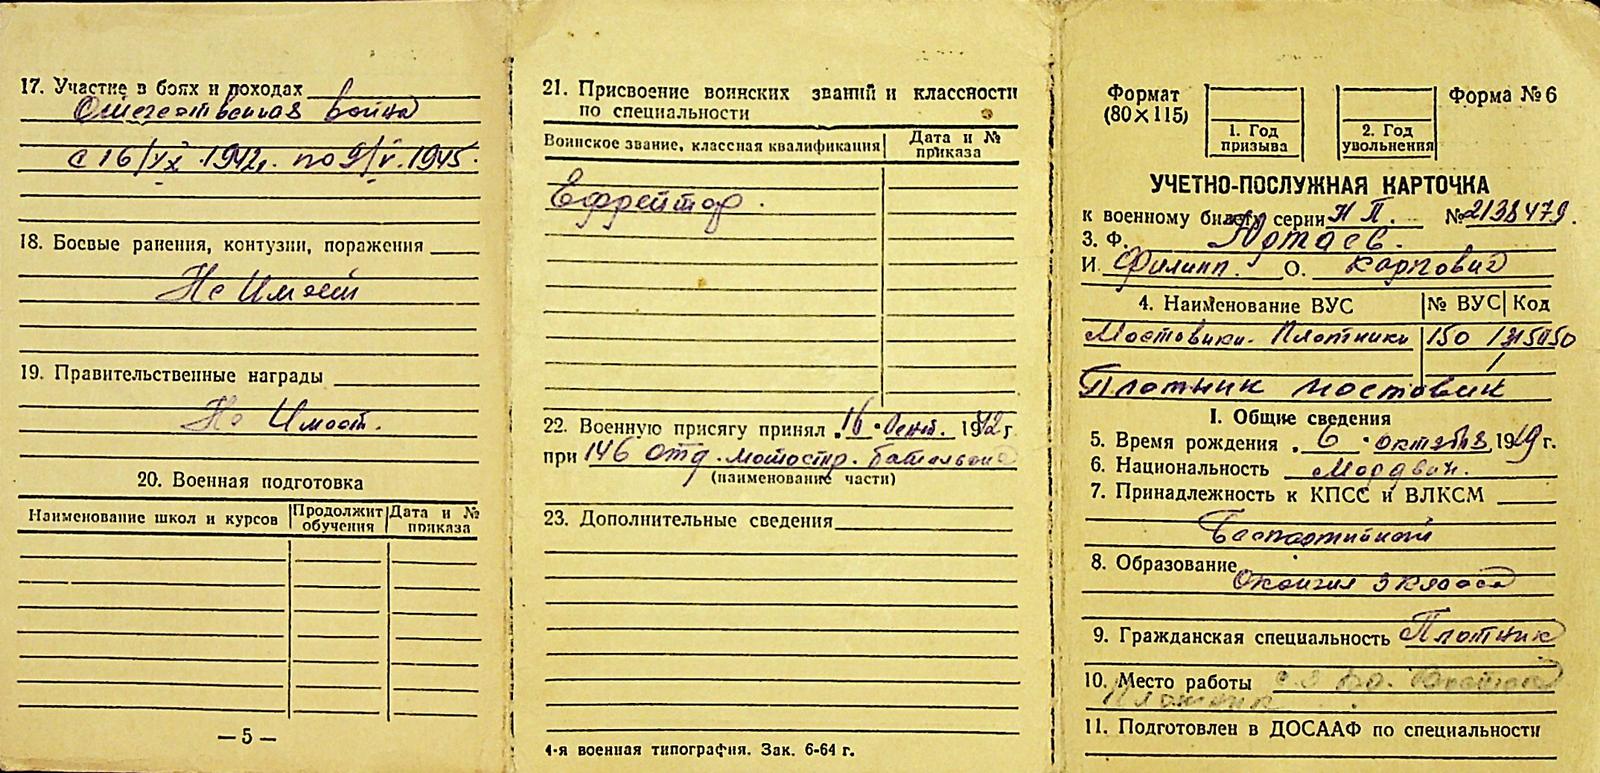 17. Участие в боях и походах
Отечественная война
с 16/IX 1942г. по 9/V. 1945.
18. Боевые ранения, контузии, поражения
Не Имеет
19. Правительственные награды
Не Имеет.
20. Военная подготовка
Наименование школ и курсов | Продолжит обучения | Дата и № приказа
— 5 —
21. Присвоение воинских званий и классности
по специальности
Воинское звание, классная квалификация | Дата и № приказа
Ефрейтор.
22. Военную присягу принял "16" Сент. 1942 г.
при 146 отд. мотостр. батальоне
(наименование части)
23. Дополнительные сведения
4-я военная типография. Зак. 6-64 г.
Формат
(80×115)
1. Год
призыва
2. Год
увольнения
Форма № 6
УЧЕТНО-ПОСЛУЖНАЯ КАРТОЧКА
к военному билету серии НП. № 2138479.
3. Ф. Юртаев.
И. Филипп. О. Карпович
4. Наименование ВУС | № ВУС | Код
Мостовики-Плотники 150
Плотник мостовик
I. Общие сведения
5. Время рождения "6" октября 1919 г.
6. Национальность Мордвин.
7. Принадлежность к КПСС и ВЛКСМ
Беспартийный
8. Образование
Окончил 3 класса
9. Гражданская специальность Плотник
10. Место работы
Плотник
11. Подготовлен в ДОСААФ по специальности